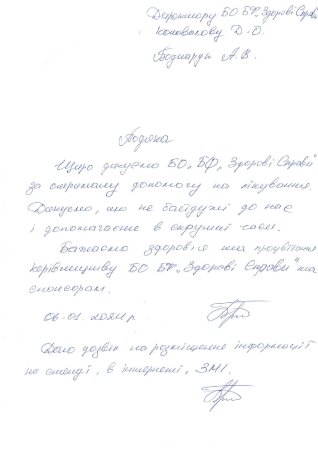 Директору БО БФ „Здорові Справи"
Коновалову Д.О.
Боднарук А.В.
Подяка
Щиро дякуємо БО „БФ „Здорові Справи"
за отриману допомогу на лікування.
Дякуємо, що не байдужі до нас
і допомагаєте в скрутний час.
Бажаємо здоров'я та процвітання
керівництву БО БФ „Здорові Справи" та
спонсорам.
06.01.2021 р.
Даю дозвіл на розміщення інформації
на стенді, в інтернеті, ЗМІ.